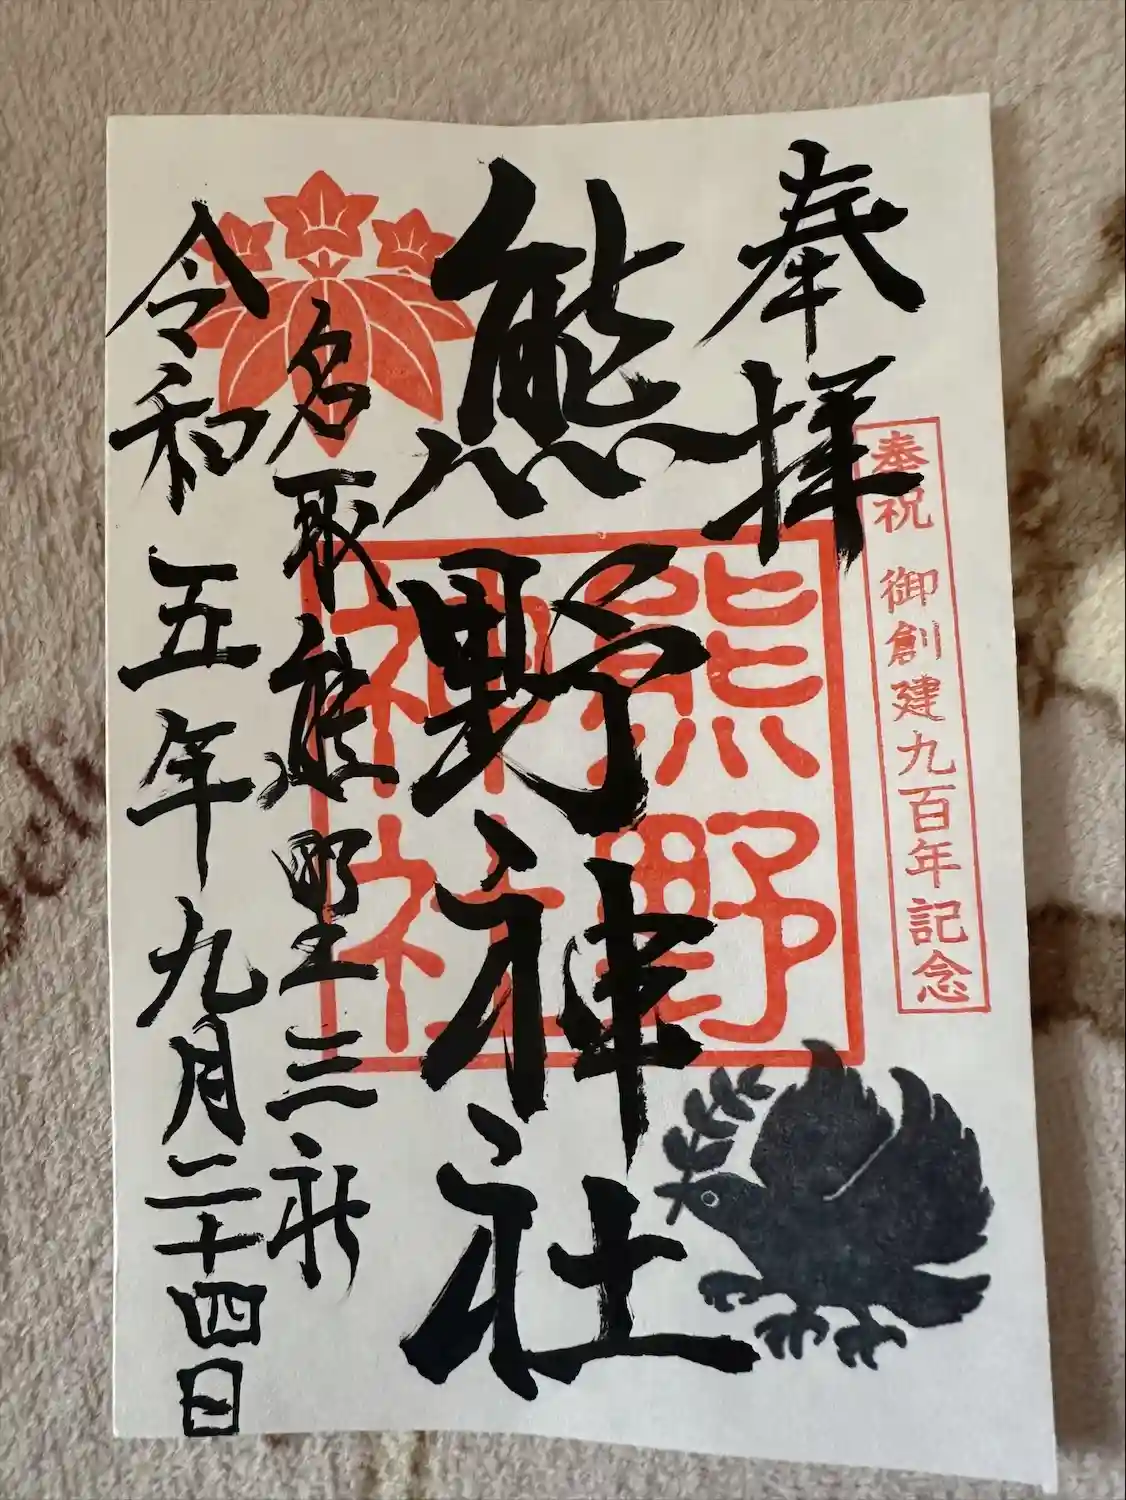 奉拝
奉祝 御創建九百年記念
熊野神社
熊野神社
名取熊野三社
令和五年九月二十四日